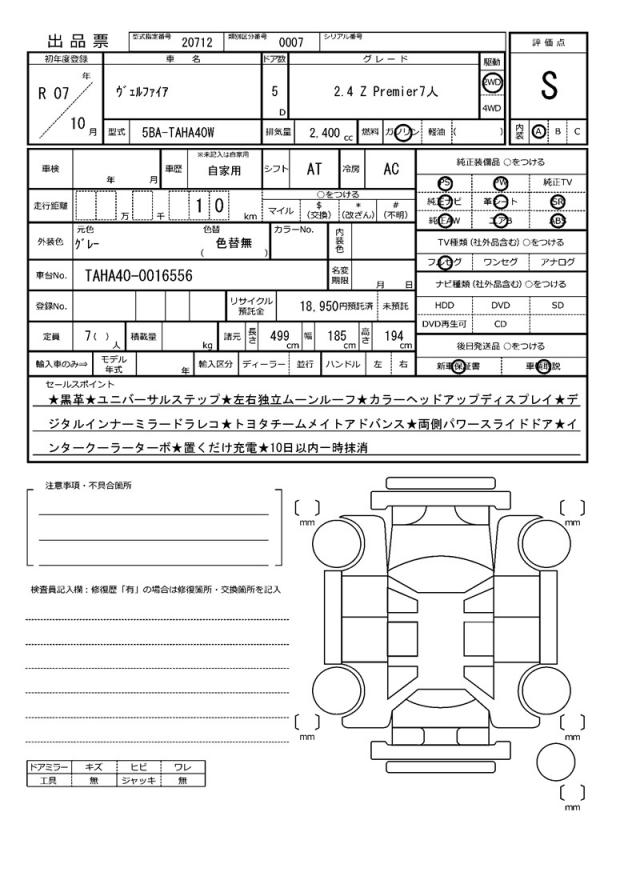 出品票 型式指定番号 20712 類別区分番号 0007 シリアル番号
評価点
S
初年度登録 車名 ドア数 グレード 駆動
R 07 年 10 月
ヴェルファイア 5 D 2.4 Z Premier7人 2WD 4WD
型式 5BA-TAHA40W 排気量 2,400 cc 燃料 ガソリン 軽油 ( ) 内装 A B C
車検 年 月 車歴 ※未記入は自家用 自家用 シフト AT 冷房 AC
純正装備品 ○をつける
PS PW 純正TV
純正ナビ 革シート SR
純正AW エアB ABS
走行距離 万 千 1 0 km
○をつける
マイル $(交換) *(改ざん) #(不明)
外装色 元色 グレー 色替 色替無 ( ) カラーNo. 内装色
TV種類(社外品含む)○をつける
フルセグ ワンセグ アナログ
車台No. TAHA40-0016556 名変期限 月 日
ナビ種類(社外品含む)○をつける
HDD DVD SD
DVD再生可 CD
登録No. リサイクル預託金 18,950円預託済 未預託
定員 7( )人 積載量 kg 諸元 長さ 499 cm 幅 185 cm 高さ 194 cm
後日発送品 ○をつける
新車保証書 車輌取説
輸入車のみ⇒ モデル年式 年 輸入区分 ディーラー 並行 ハンドル 左 右
セールスポイント
★黒革★ユニバーサルステップ★左右独立ムーンルーフ★カラーヘッドアップディスプレイ★デ
ジタルインナーミラードラレコ★トヨタチームメイトアドバンス★両側パワースライドドア★イ
ンタークーラーターボ★置くだけ充電★10日以内一時抹消
注意事項・不具合箇所
検査員記入欄：修復歴「有」の場合は修復箇所・交換箇所を記入
mm
mm
mm
mm
mm
ドアミラー キズ ヒビ ワレ
工具 無 ジャッキ 無